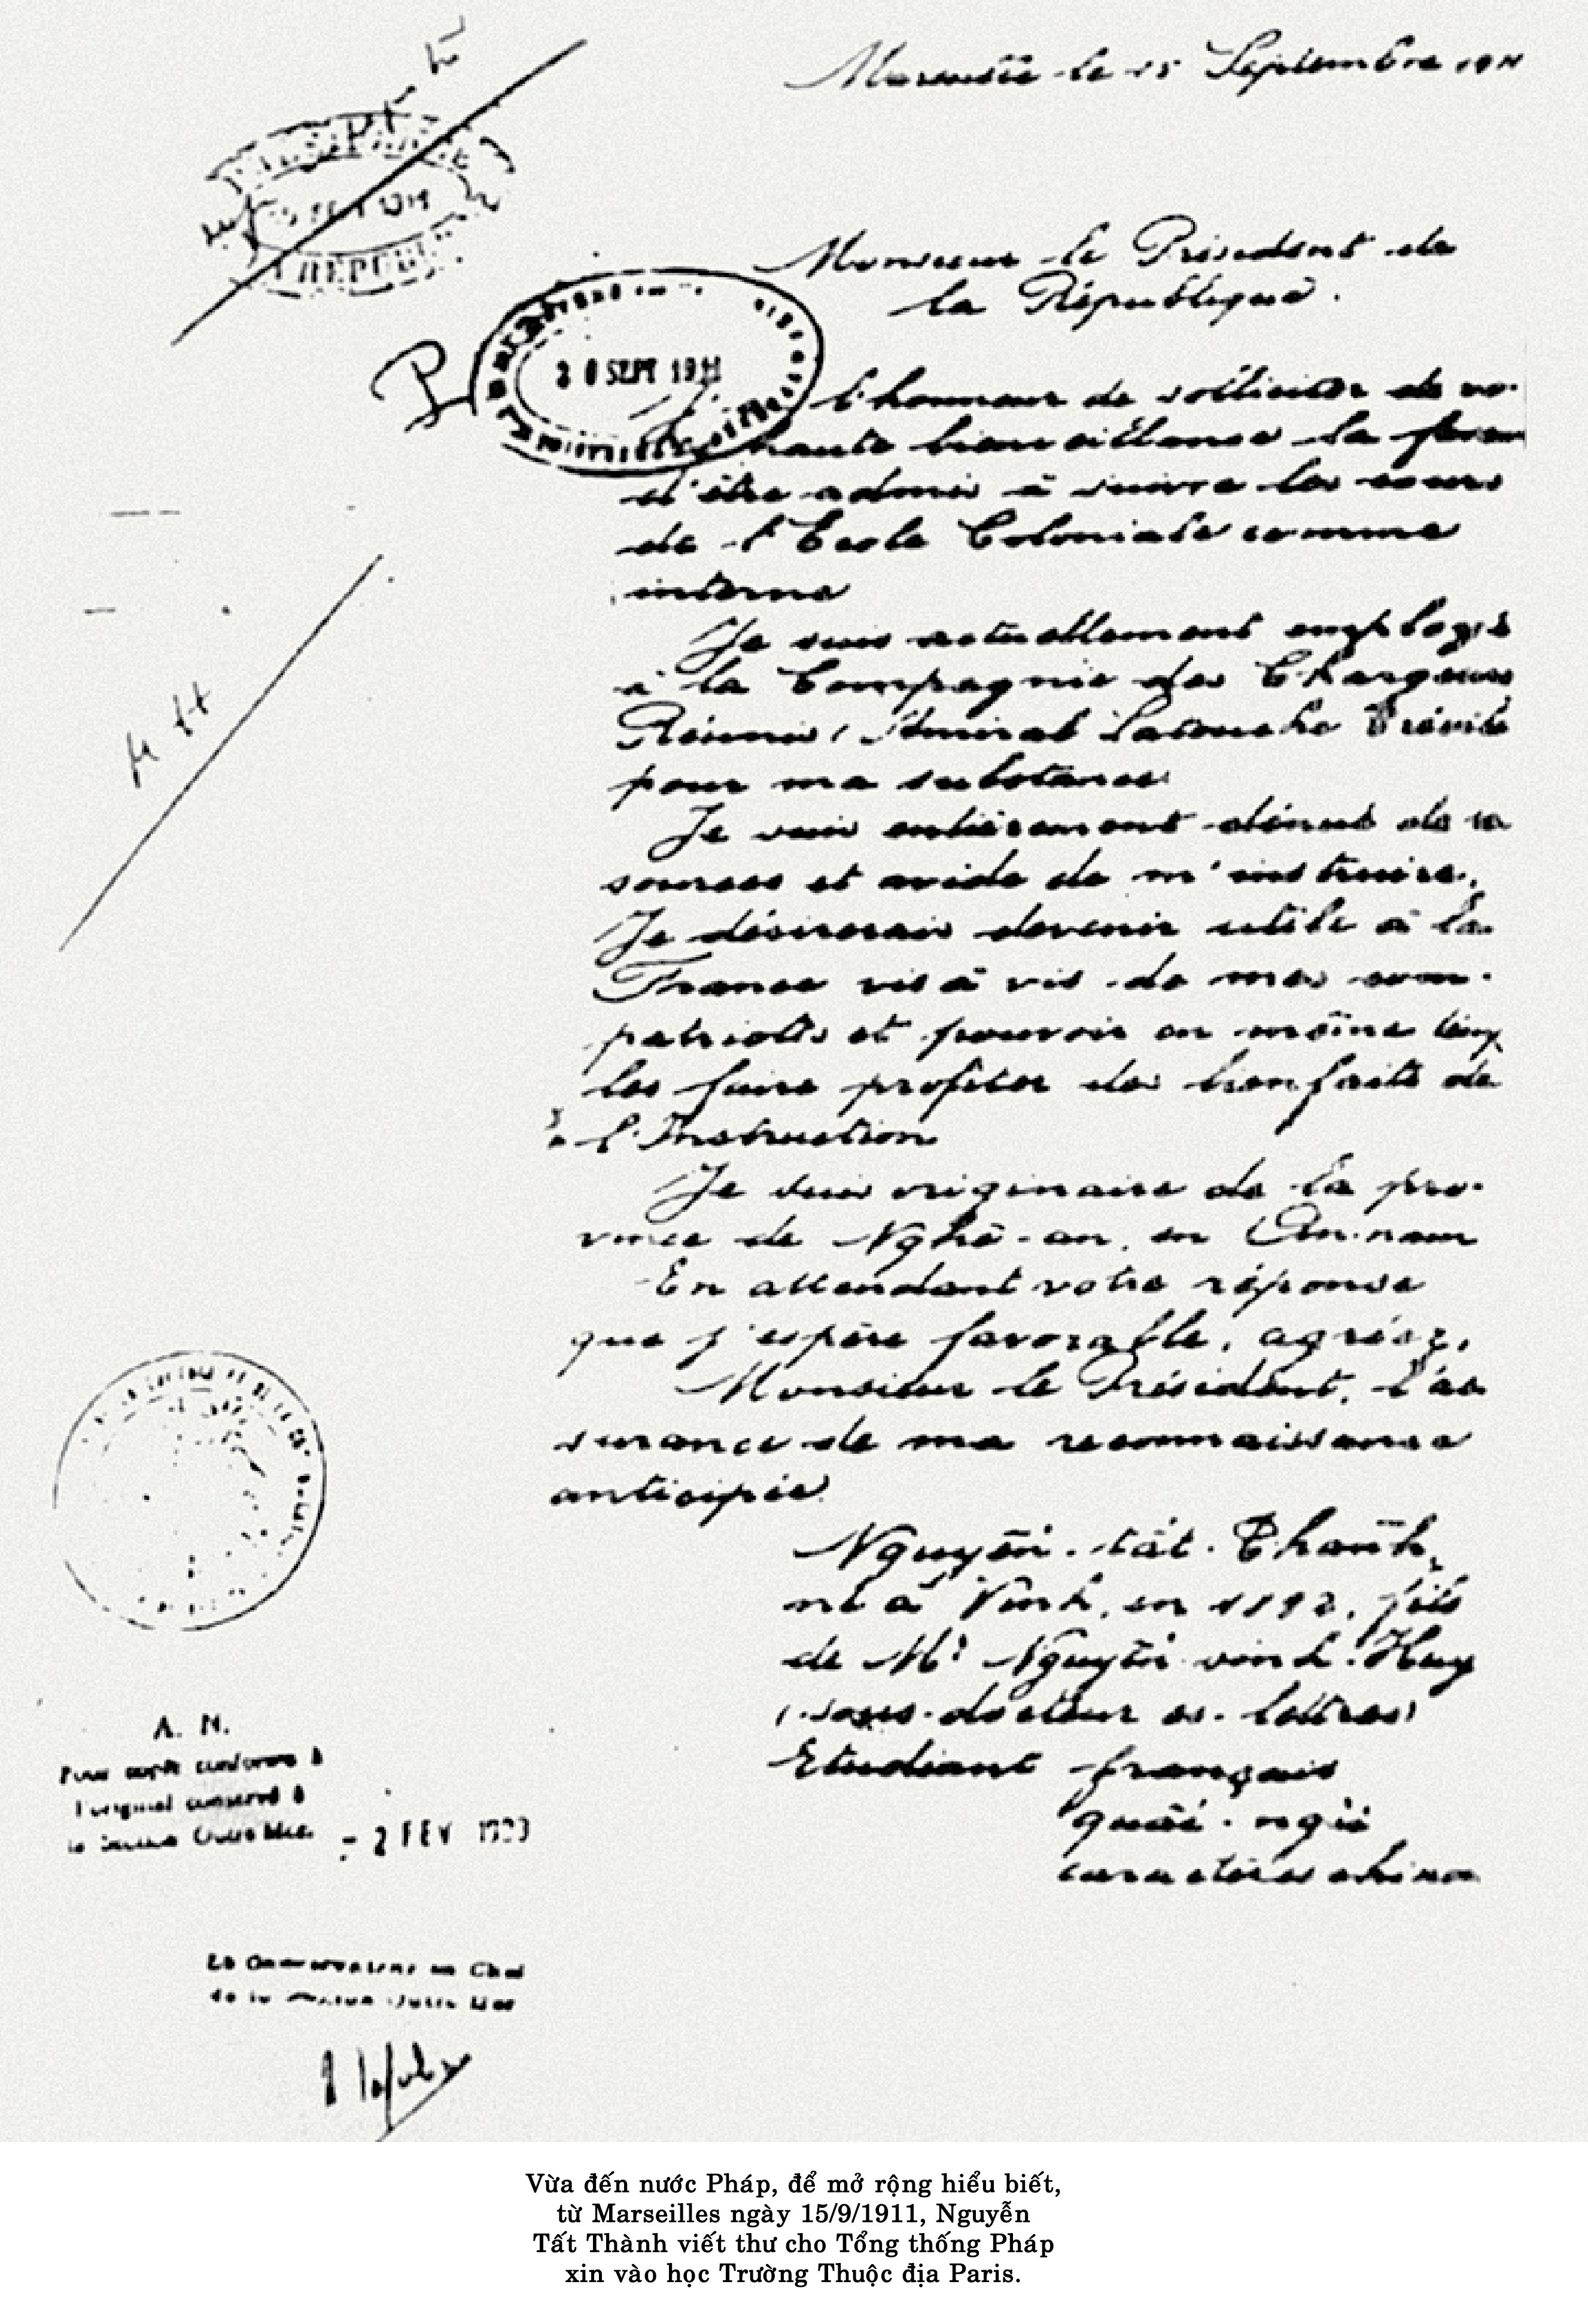 Marseille le 15 Septembre 1911
Monsieur le Président de
la République.
20 SEPT 1911
l'honneur de solliciter de vo-
haute bienveillance la faveur
d'être admis à suivre les cours
de l'Ecole Coloniale comme
interne
Je suis actuellement employé
à la Compagnie des Chargeurs
Réunis, Amiral Latouche Tréville
pour ma substance
Je suis entièrement dénué de re
sources et avide de m'instruire.
Je désirerais devenir utile à la
France vis à vis de mes com-
patriotes et pouvoir en même temps
les faire profiter des bienfaits de
l'Instruction
Je suis originaire de la pro-
vince de Nghê-an, en An-nam
En attendant votre réponse
que j'espère favorable, agréez,
Monsieur le Président, l'as
surance de ma reconnaissance
anticipée
Nguyễn-tất-Thành,
né à Vinh, en 1892, fils
de Mr Nguyễn sinh Huy
(sous-docteur es-lettres)
Etudiant français
quốc-ngữ
caractères chinois
A. N.
Pour copie conforme à
l'original conservé à
la Section Outre Mer.
- 2 FEV
Le Conservateur en Chef
de la Section Outre Mer
Vừa đến nước Pháp, để mở rộng hiểu biết,
từ Marseilles ngày 15/9/1911, Nguyễn
Tất Thành viết thư cho Tổng thống Pháp
xin vào học Trường Thuộc địa Paris.